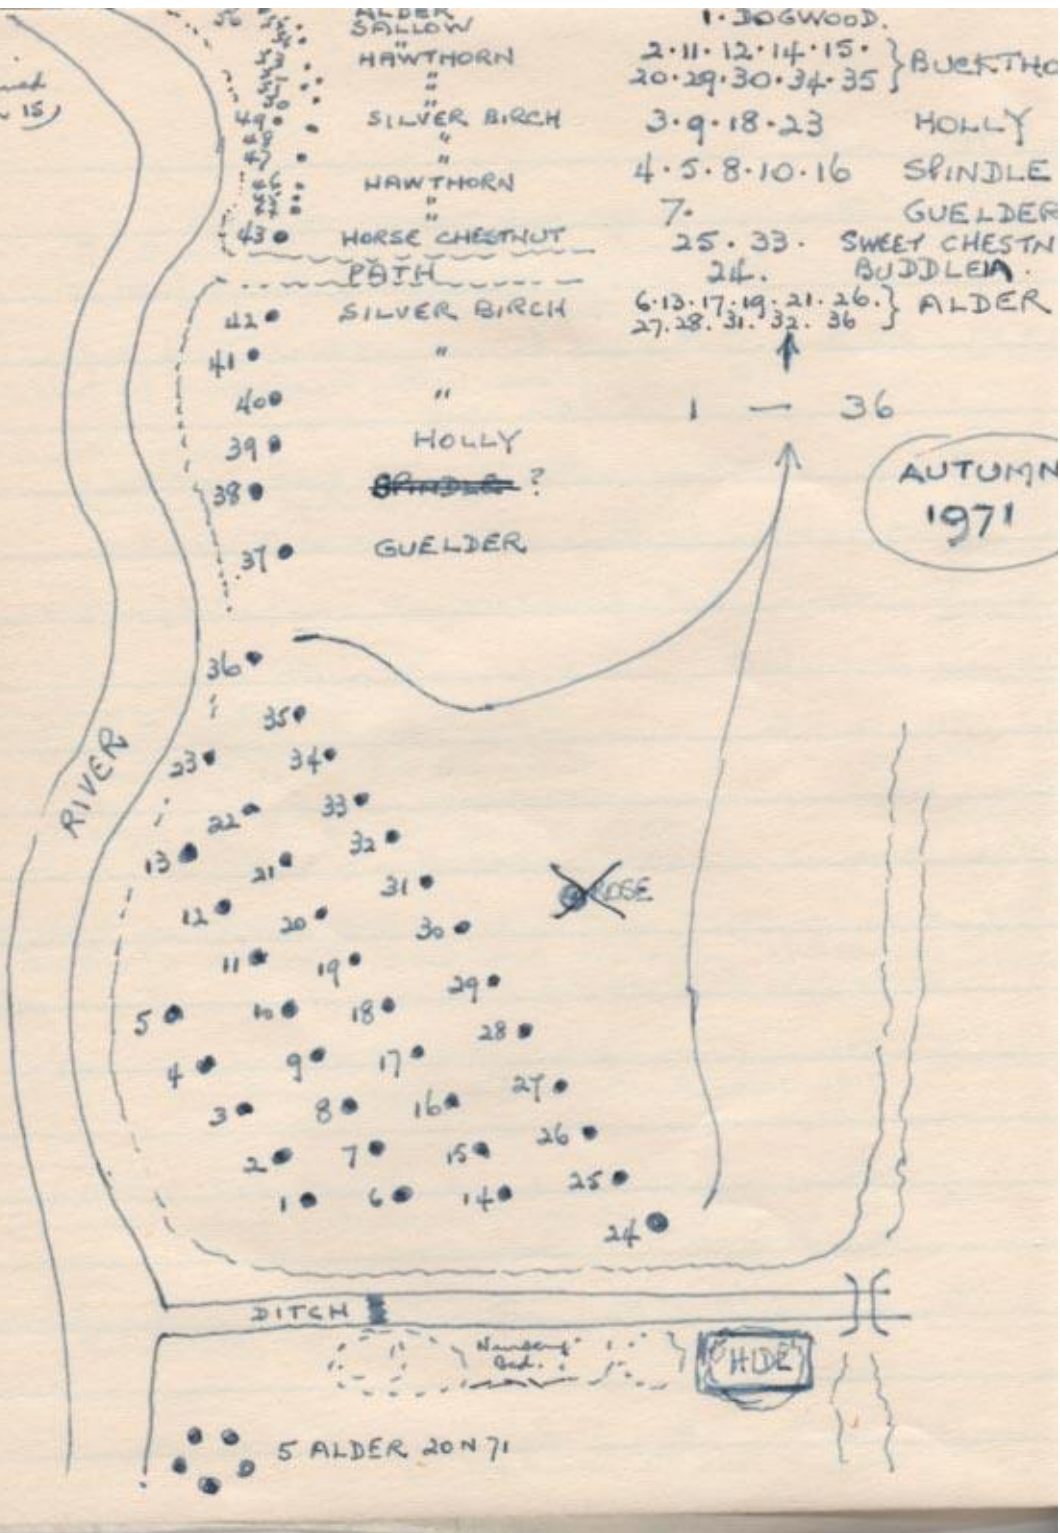 ALDER
56 55 SALLOW
54 "
53 HAWTHORN
52 "
51 "
50 "
49 SILVER BIRCH
48 "
47 "
46 HAWTHORN
45 "
44 "
43 HORSE CHESTNUT
PATH
42 SILVER BIRCH
41 "
40 "
39 HOLLY
38 SPINDLE ?
37 GUELDER
1. DOGWOOD.
2·11·12·14·15·
20·29·30·34·35 } BUCKTHO
3·9·18·23 HOLLY
4·5·8·10·16 SPINDLE
7· GUELDER
25·33· SWEET CHESTN
24. BUDDLEIA.
6·13·17·19·21·26.
27.28.31.32.36 } ALDER
1 — 36
AUTUMN
1971
15)
RIVER
36
35
23 34
22 33
13 21 32
12 20 31
11 19 30
5 10 18 29
4 9 17 28
3 8 16 27
2 7 15 26
1 6 14 25
24
ROSE
DITCH
Nursery
Bed.
HIDE
5 ALDER 20 N 71